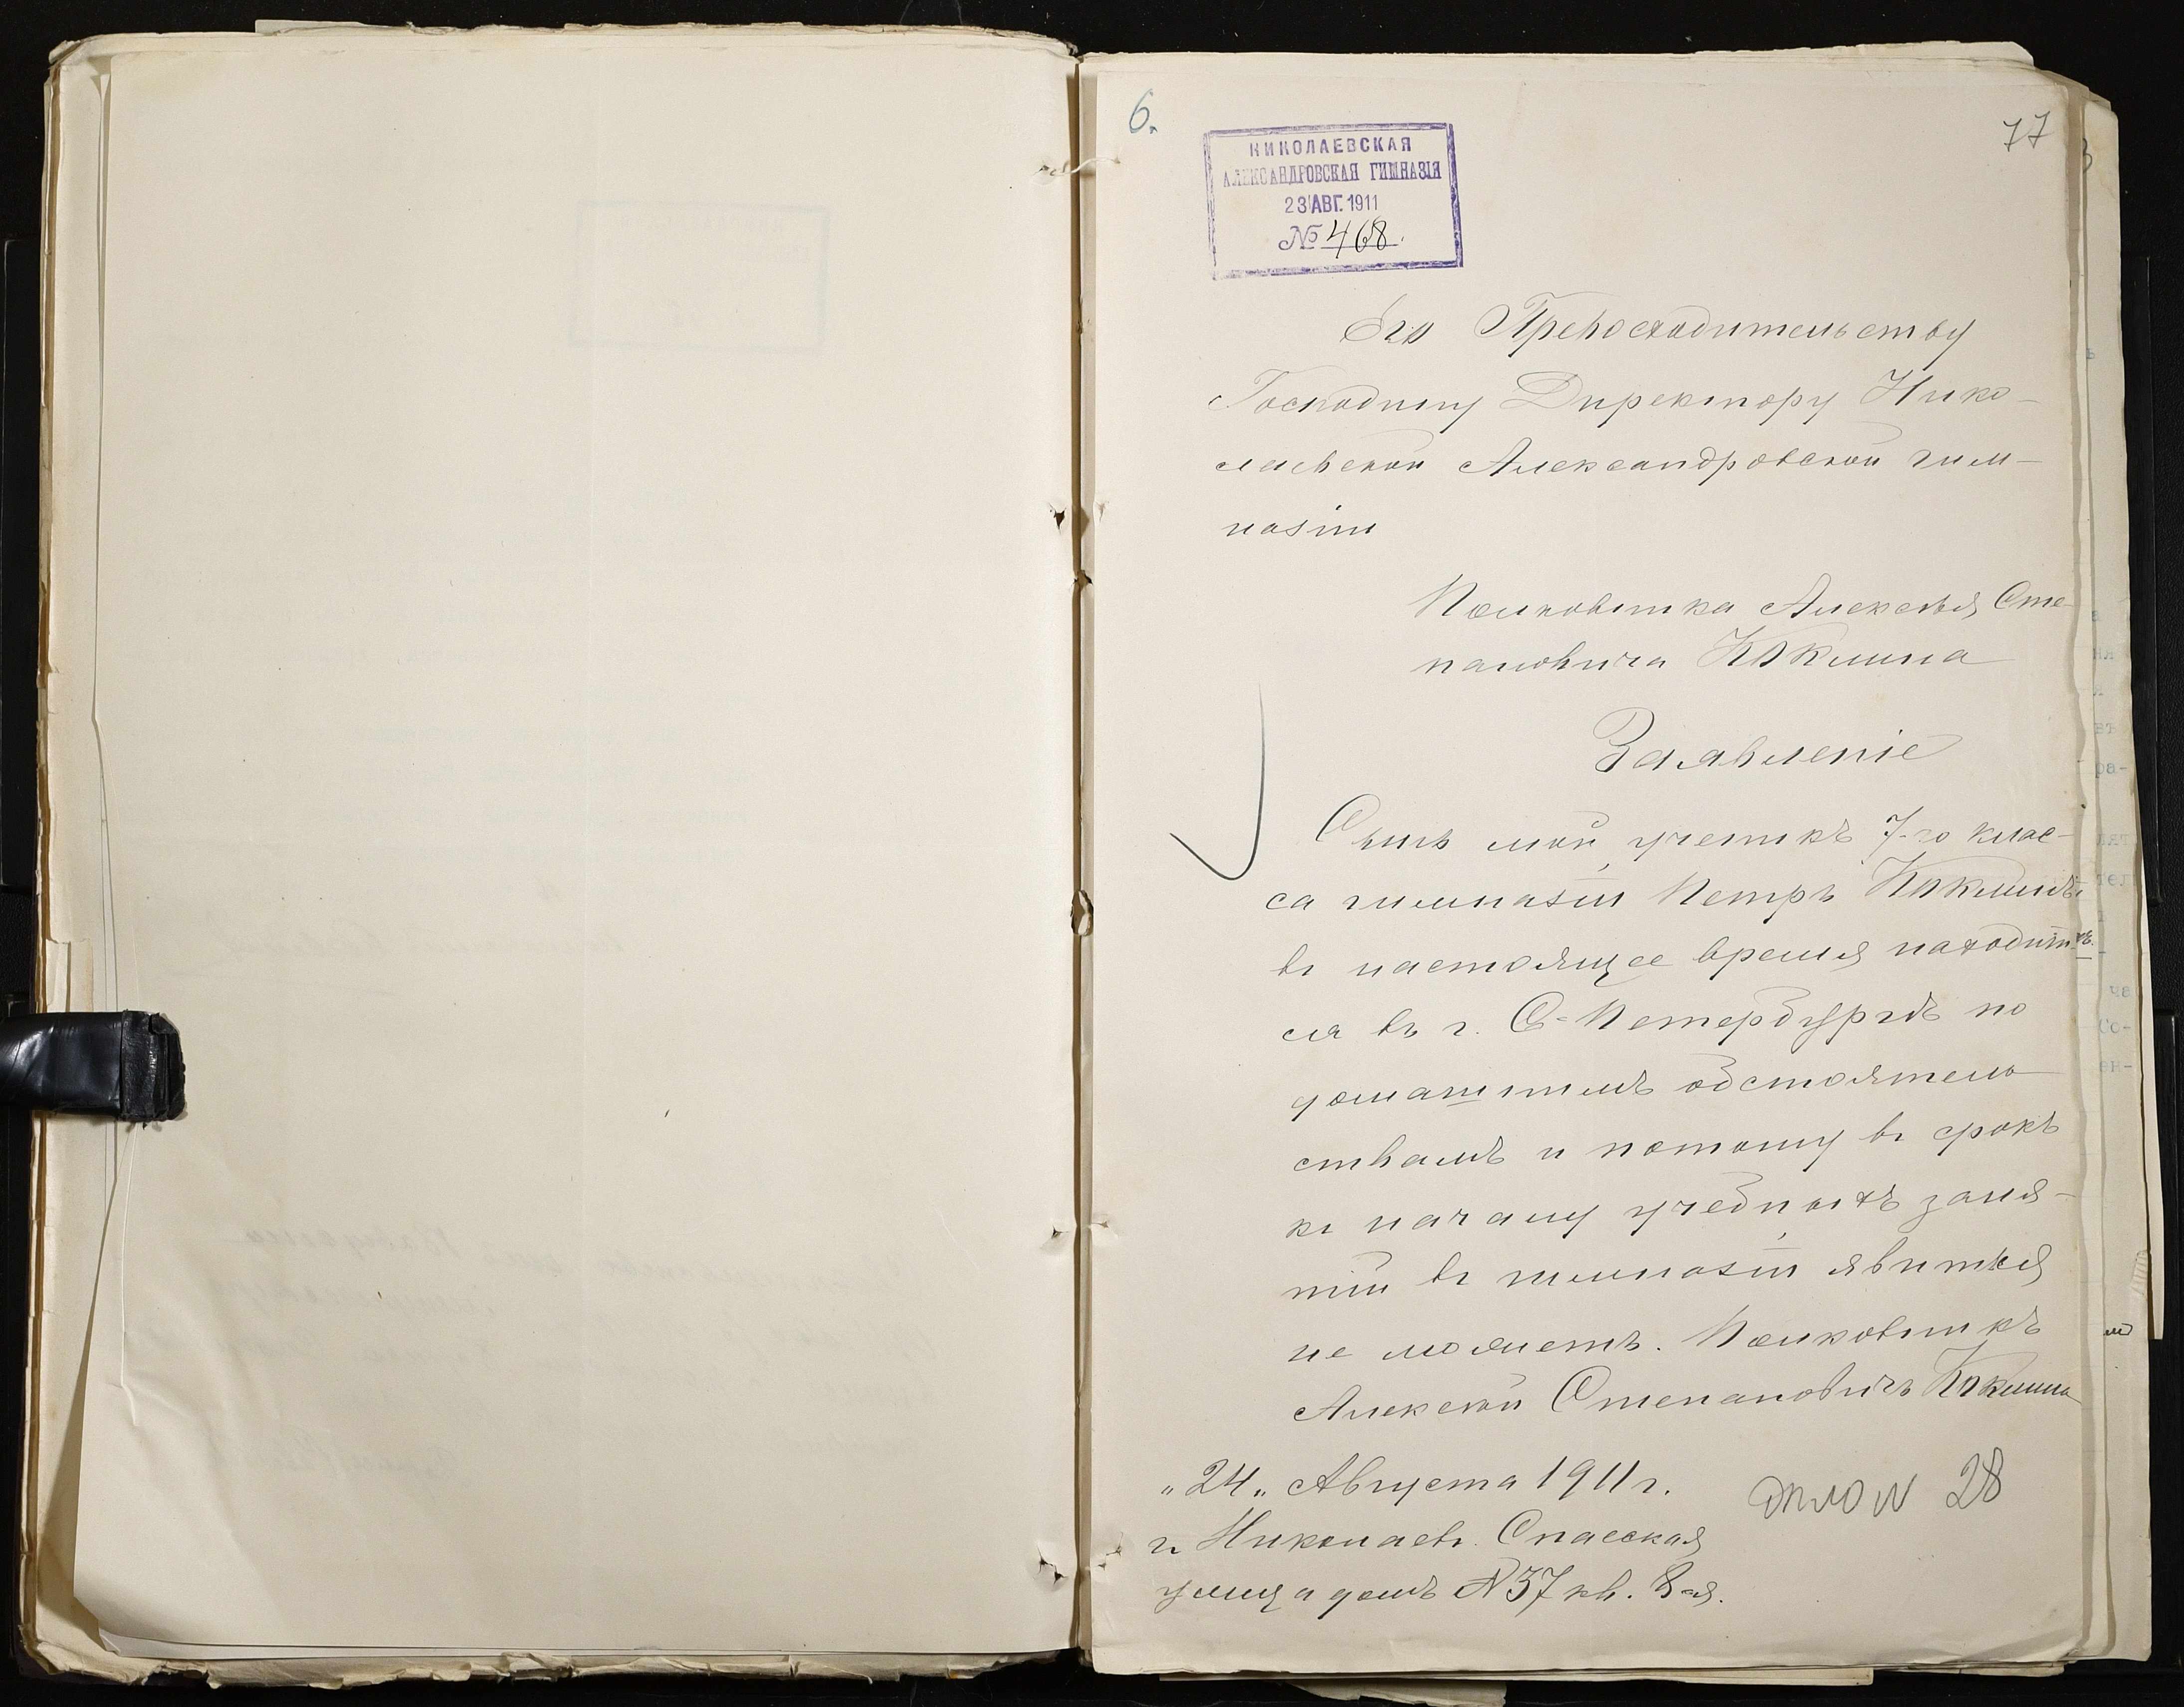 6.
77
НИКОЛАЕВСКАЯ
АЛЕКСАНДРОВСКАЯ ГИМНАЗІЯ
23 АВГ. 1911
№ 468.
Его Превосходительству
Господину Директору Нико-
лаевской Александровской гим-
назіи
Полковника Алексѣя Сте-
пановича Коклина
Заявленіе
Сынъ мой, ученикъ 7-го клас-
са гимназіи Петръ Коклинъ
въ настоящее время находит-
ся въ г. С-Петербургѣ по
домашнимъ обстоятель-
ствамъ и потому въ срокъ
къ началу учебныхъ заня-
тій въ гимназіи явиться
не можетъ. Полковникъ
Алексѣй Степановичъ Коклинъ
"24" Августа 1911 г.
дѣло N 28
г. Николаевъ. Спасская
улица домъ № 37 кв. 8-я.